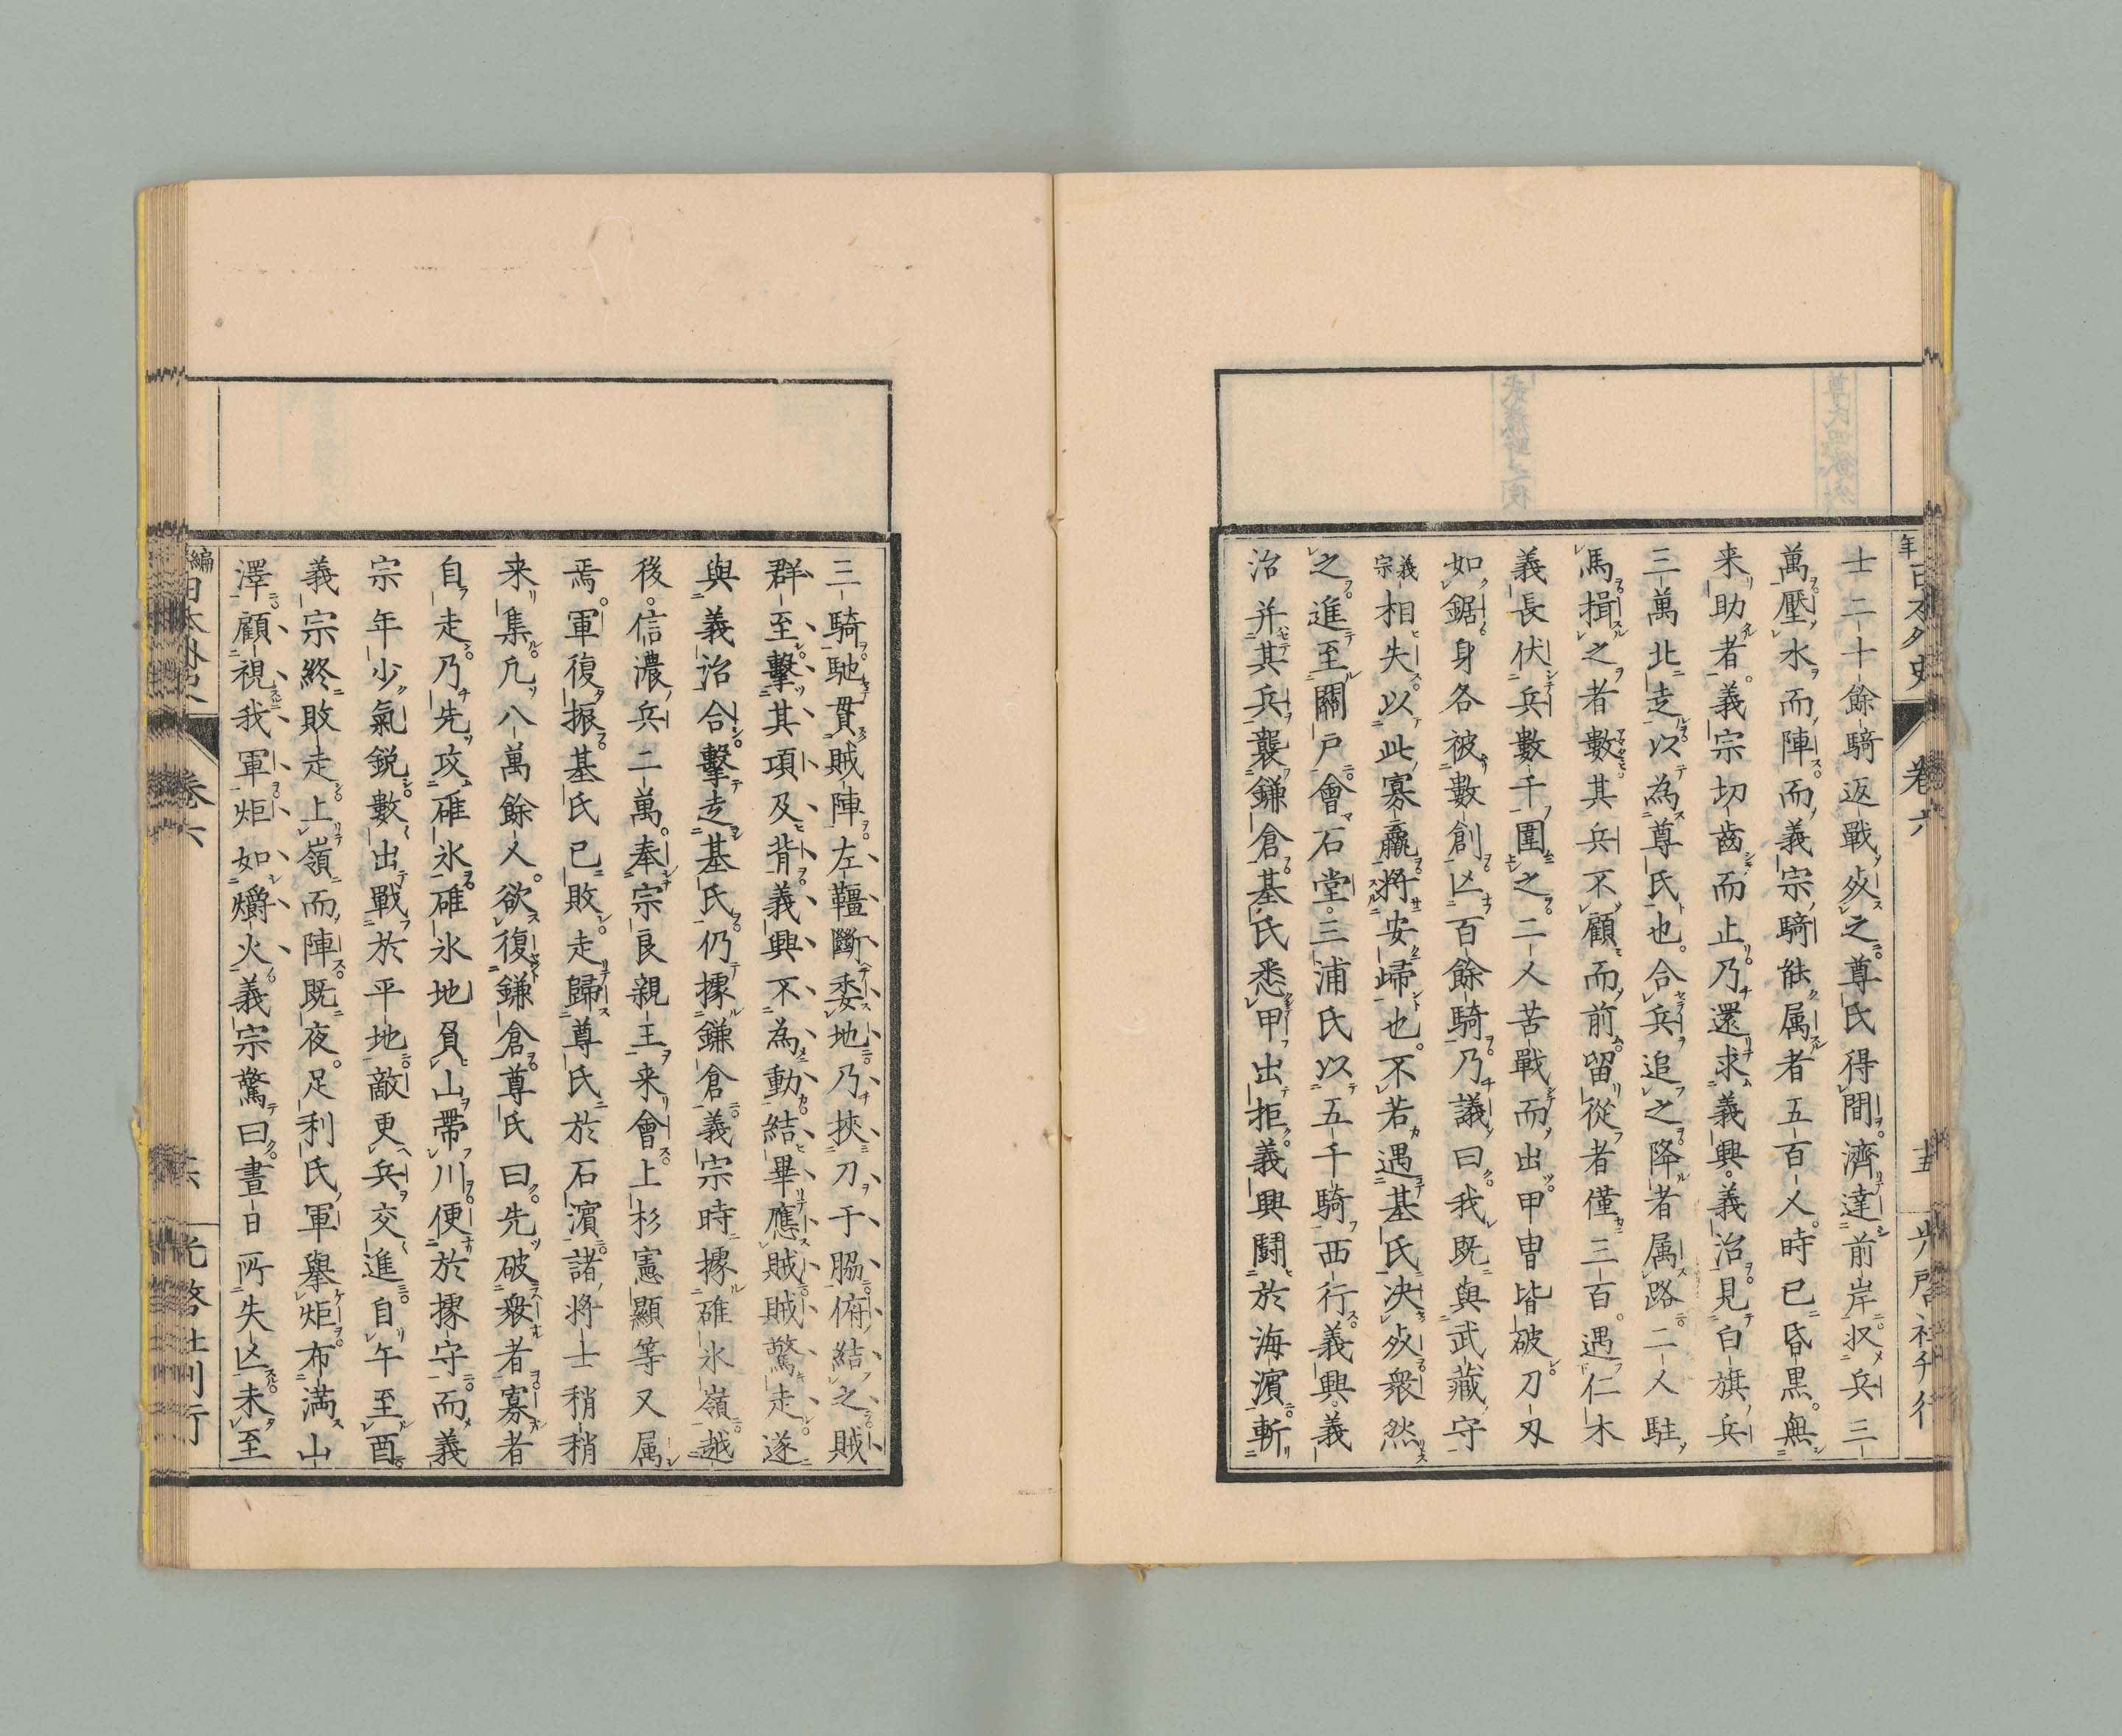 士二十餘騎返戰死之尊氏得間濟達前岸收兵三
萬壓水而陣而義宗騎能属者五百人時已昏黒無
来助者義宗切齒而止乃還求義興義治見白旗兵
三萬北走以為尊氏也合兵追之降者属路二人駐
馬揖之者數其兵不顧而前留從者僅三百遇仁木
義長伏兵數千圍之二人苦戰而出甲冑皆破刀刄
如鋸身各被數創亾百餘騎乃議曰我既與武藏守
義宗相失以此寡羸將安歸也不若遇基氏决死衆然
之進至關戸會石堂三浦氏以五千騎西行義興義
治并其兵襲鎌倉基氏悉甲出拒義興鬪於海濱斬
三騎馳貫賊陣左韁斷委地乃挾刀于脇俯結之賊
群至擊其項及背義興不為動結畢應賊賊驚走遂
與義治合擊走基氏仍據鎌倉義宗時據碓氷嶺越
後信濃兵二萬奉宗良親王来會上杉憲顯等又属
焉軍復振基氏已敗走歸尊氏於石濱諸將士稍稍
来集凡八萬餘人欲復鎌倉尊氏曰先破衆者寡者
自走乃先攻碓氷碓氷地負山帶川便於據守而義
宗年少氣銳數出戰於平地敵更兵交進自午至酉
義宗終敗走上嶺而陣既夜足利氏軍擧炬布滿山
澤顧視我軍炬如爝火義宗驚曰晝日所失亾未至
卷六